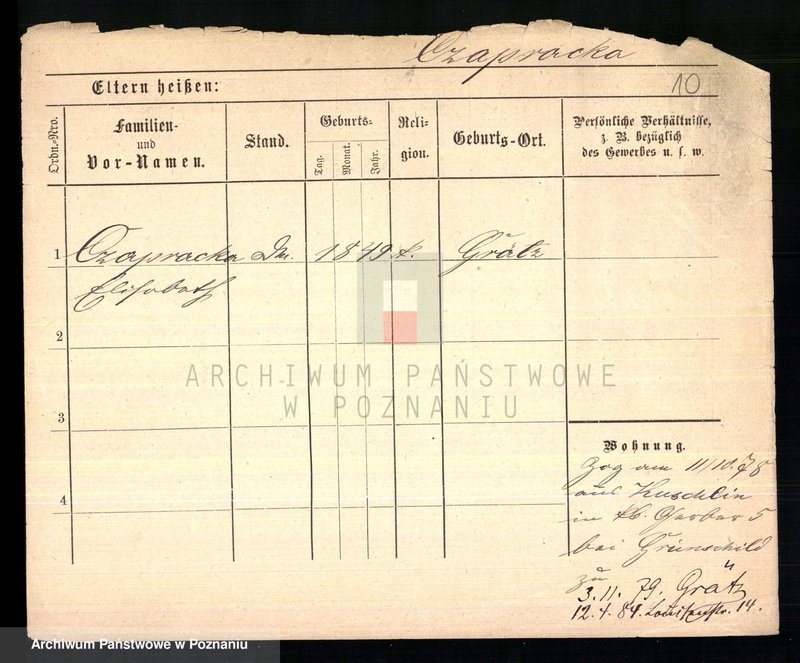 Czapracka
10
Eltern heißen:
Ordn.-Nro.
Familien-
und
Vor-Namen.
Stand.
Geburts-
Tag.
Monat.
Jahr.
Reli-
gion.
Geburts-Ort.
Persönliche Verhältnisse,
z. B. bezüglich
des Gewerbes u. s. w.
1 Czapracka 1849 k. Grätz
Elisabeth
2
ARCHIWUM PAŃSTWOWE
W POZNANIU
3
Wohnung.
4
zog am 11/10. 78
aus Kuschlin
in Gerber 5
bei Grünschild
zu
3.11. 79. Grätz
12.4.84. Louisenstr. 14.
Archiwum Państwowe w Poznaniu